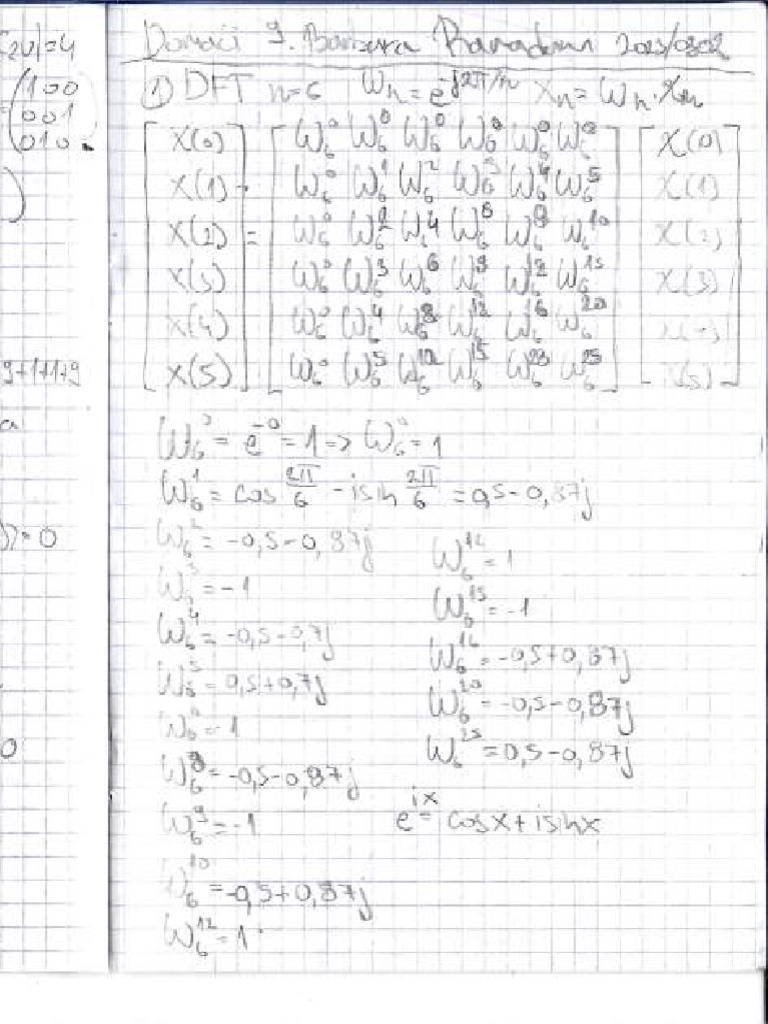 2υ|=4
100
001
010
9+1+1+9
a
=0
0
Domaći 9. Barbara 2023/0302
① DFT n=6 Wn=e^-j2π/n Xn=Wn·xn
X(0) W6^0 W6^0 W6^0 W6^0 W6^0 W6^0 X(0)
X(1) W6^0 W6^1 W6^2 W6^3 W6^4 W6^5 X(1)
X(2) = W6^0 W6^2 W6^4 W6^6 W6^8 W6^10 X(2)
X(3) W6^0 W6^3 W6^6 W6^9 W6^12 W6^15 X(3)
X(4) W6^0 W6^4 W6^8 W6^12 W6^16 W6^20
X(5) W6^0 W6^5 W6^12 W6^15 W6^23 W6^25 X(5)
W6^0 = e^-0 = 1 => W6^0 = 1
W6^1 = cos 2π/6 - isin 2π/6 = 0,5-0,87j
W6^2 = -0,5-0,87j
W6^3 = -1
W6^4 = -0,5-0,7j
W6^5 = 0,5+0,7j
W6^6 = 1
W6^8 = -0,5-0,87j
W6^9 = -1
W6^10 = -0,5+0,87j
W6^12 = 1
W6^12 = 1
W6^15 = -1
W6^16 = -0,5+0,87j
W6^20 = -0,5-0,87j
W6^25 = 0,5-0,87j
e^ix = cosx+isinx